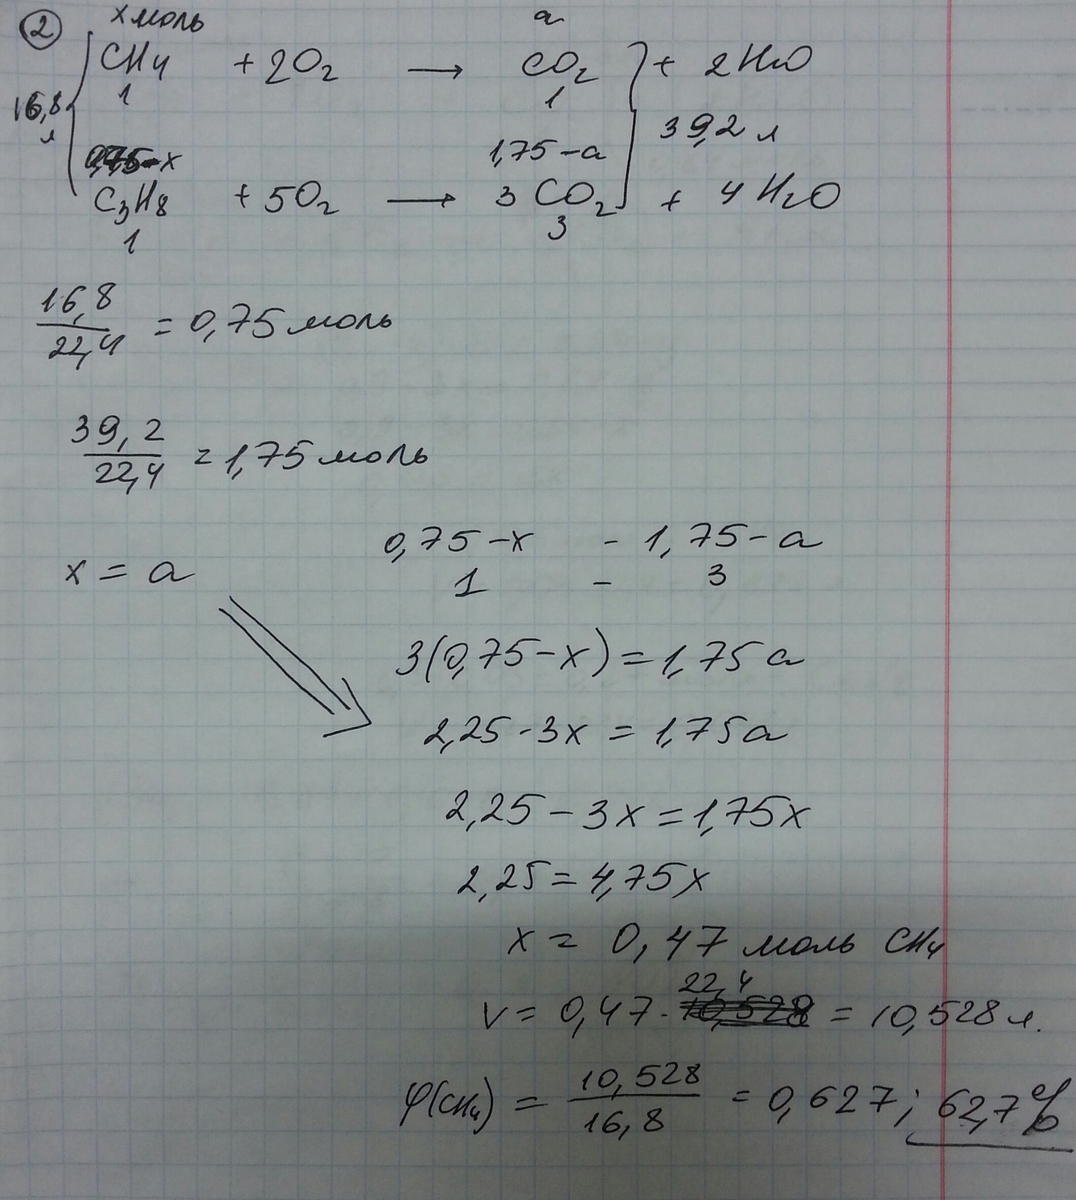 ② x моль a
CH₄ + 2O₂ → CO₂ + 2H₂O
1 1
16,8 л 39,2 л
0,75-x 1,75-a
C₃H₈ + 5O₂ → 3CO₂ + 4H₂O
1 3
16,8/22,4 = 0,75 моль
39,2/22,4 = 1,75 моль
0,75-x - 1,75-a
x = a 1 - 3
3(0,75-x) = 1,75a
2,25-3x = 1,75a
2,25-3x = 1,75x
2,25 = 4,75x
x = 0,47 моль CH₄
V = 0,47 · 22,4 = 10,528 л.
φ(CH₄) = 10,528/16,8 = 0,627; 62,7%